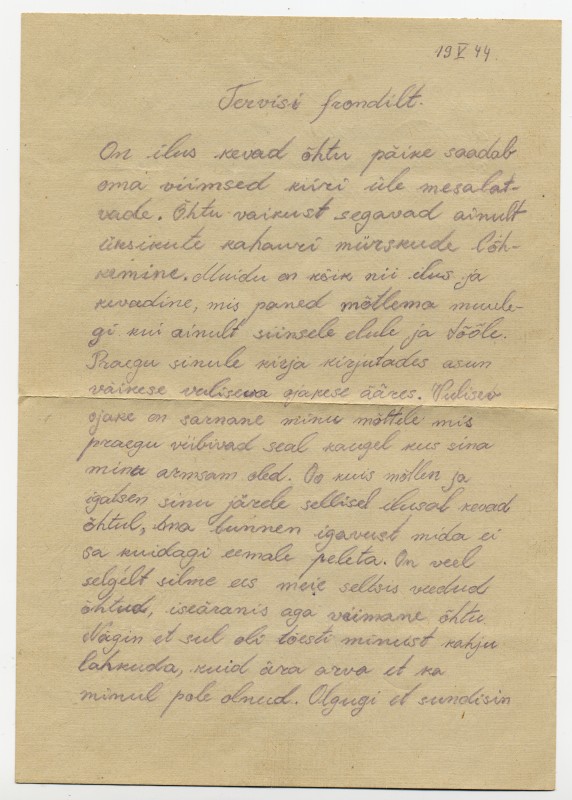 19 V 44.
Tervisi frondilt.
On ilus kevad õhtu päike saadab
oma viimsed kiiri üle mesalat-
vade. Õhtu vaikust segavad ainult
üksikute kahauri mürskude lõh-
kemine. Muidu on kõik nii ilus ja
kevadine, mis paned mõtlema muule-
gi kui ainult siinsele elule ja tööle.
Praegu sinule kirja kirjutades asun
väikese vuliseva ojakese ääres. Vulisev
ojake on sarnane minu mõttele mis
praegu viibivad seal kaugel kus sina
minu armsam oled. Oo kuis mõtlen ja
igatsen sinu järele sellisel ilusal kevad
õhtul, ma tunnen igavust mida ei
sa kuidagi eemale peleta. On veel
selgelt silme ees meie seltsis veedud
õhtud, iseäranis aga viimane õhtu
Nägin et sul oli tõesti minust kahju
lahkuda, kuid ära arva et ka
minul pole olnud. Olgugi et sundisin